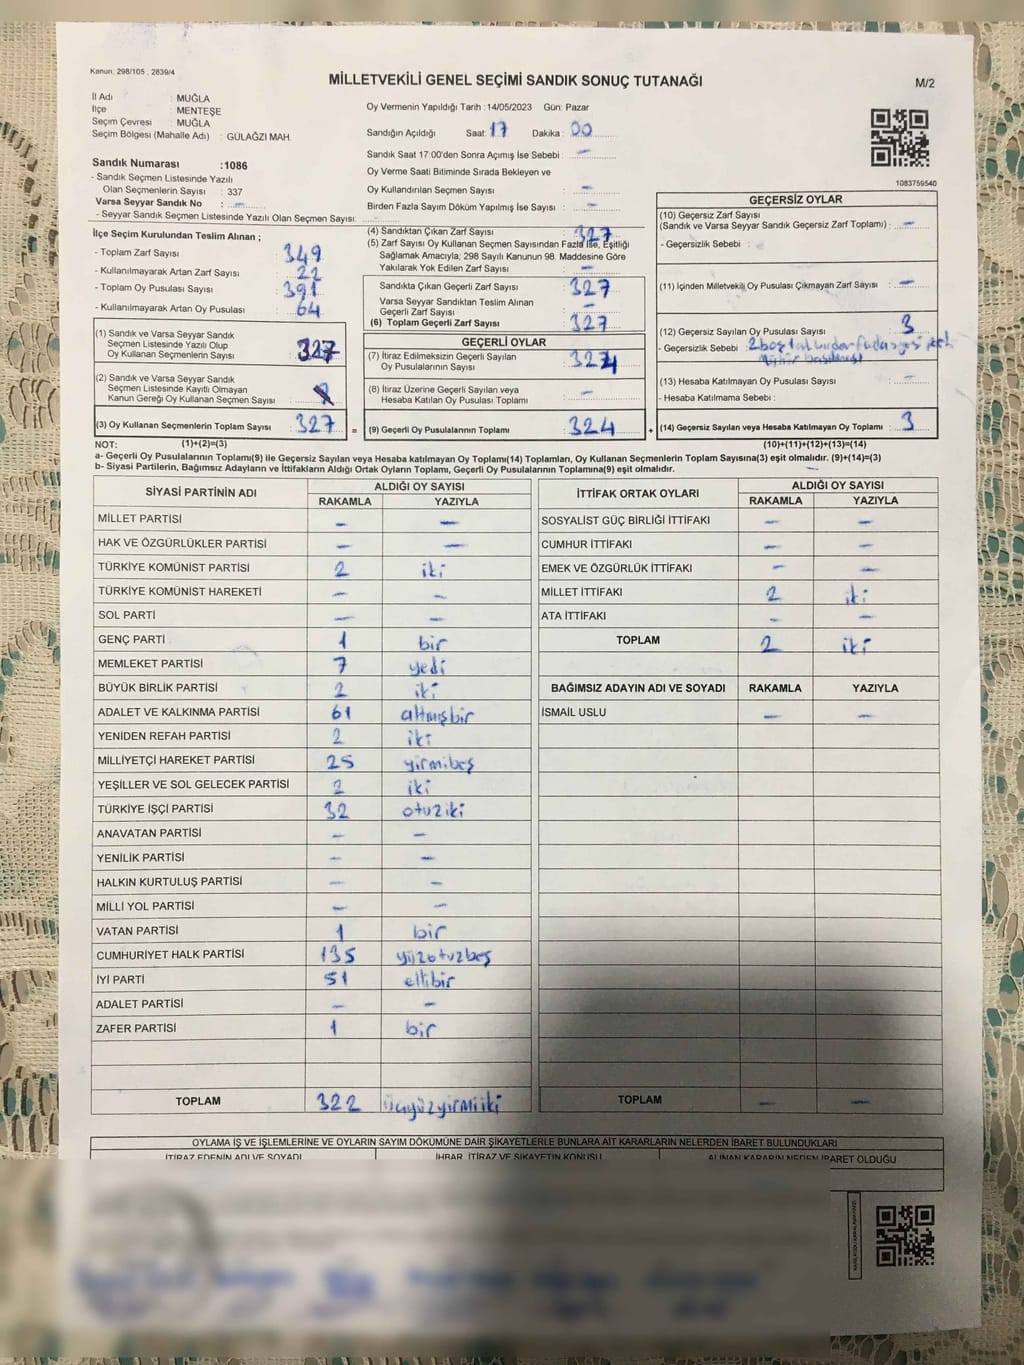 Kanun: 298/105 , 2839/4
MİLLETVEKİLİ GENEL SEÇİMİ SANDIK SONUÇ TUTANAĞI
M/2
İl Adı : MUĞLA
İlçe : MENTEŞE
Seçim Çevresi : MUĞLA
Seçim Bölgesi (Mahalle Adı) : GÜLAĞZI MAH.
Oy Vermenin Yapıldığı Tarih :14/05/2023 Gün: Pazar
Sandığın Açıldığı Saat: 17 Dakika : 00
Sandık Saat 17:00'den Sonra Açımış İse Sebebi : —
Oy Verme Saati Bitiminde Sırada Bekleyen ve
Oy Kullandırılan Seçmen Sayısı : —
Birden Fazla Sayım Döküm Yapılmış İse Sayısı : —
1083759540
Sandık Numarası :1086
- Sandık Seçmen Listesinde Yazılı
Olan Seçmenlerin Sayısı : 337
Varsa Seyyar Sandık No : —
- Seyyar Sandık Seçmen Listesinde Yazılı Olan Seçmen Sayısı:
İlçe Seçim Kurulundan Teslim Alınan ;
- Toplam Zarf Sayısı : 349
- Kullanılmayarak Artan Zarf Sayısı : 22
- Toplam Oy Pusulası Sayısı : 391
- Kullanılmayarak Artan Oy Pusulası : 64
(1) Sandık ve Varsa Seyyar Sandık
Seçmen Listesinde Yazılı Olup
Oy Kullanan Seçmenlerin Sayısı : 327
(2) Sandık ve Varsa Seyyar Sandık
Seçmen Listesinde Kayıtlı Olmayan
Kanun Gereği Oy Kullanan Seçmen Sayısı :
(3) Oy Kullanan Seçmenlerin Toplam Sayısı : 327
(4) Sandıktan Çıkan Zarf Sayısı : 327
(5) Zarf Sayısı Oy Kullanan Seçmen Sayısından Fazla İse, Eşitliği
Sağlamak Amacıyla; 298 Sayılı Kanunun 98. Maddesine Göre
Yakılarak Yok Edilen Zarf Sayısı : —
Sandıkta Çıkan Geçerli Zarf Sayısı : 327
Varsa Seyyar Sandıktan Teslim Alınan
Geçerli Zarf Sayısı : —
(6) Toplam Geçerli Zarf Sayısı : 327
GEÇERLİ OYLAR
(7) İtiraz Edilmeksizin Geçerli Sayılan
Oy Pusulalarının Sayısı : 324
(8) İtiraz Üzerine Geçerli Sayılan veya
Hesaba Katılan Oy Pusulası Toplamı : —
= (9) Geçerli Oy Pusulalarının Toplamı : 324
GEÇERSİZ OYLAR
(10) Geçersiz Zarf Sayısı
(Sandık ve Varsa Seyyar Sandık Geçersiz Zarf Toplamı) : —
- Geçersizlik Sebebi :
(11) İçinden Milletvekili Oy Pusulası Çıkmayan Zarf Sayısı : —
(12) Geçersiz Sayılan Oy Pusulası Sayısı : 3
- Geçersizlik Sebebi : 2 boş
(13) Hesaba Katılmayan Oy Pusulası Sayısı : —
- Hesaba Katılmama Sebebi :
+ (14) Geçersiz Sayılan veya Hesaba Katılmayan Oy Toplamı : 3
NOT: (1)+(2)=(3) (10)+(11)+(12)+(13)=(14)
a- Geçerli Oy Pusulalarının Toplamı(9) ile Geçersiz Sayılan veya Hesaba katılmayan Oy Toplamı(14) Toplamları, Oy Kullanan Seçmenlerin Toplam Sayısına(3) eşit olmalıdır. (9)+(14)=(3)
b- Siyasi Partilerin, Bağımsız Adayların ve İttifakların Aldığı Ortak Oyların Toplamı, Geçerli Oy Pusulalarının Toplamına(9) eşit olmalıdır.
SİYASİ PARTİNİN ADI ALDIĞI OY SAYISI
RAKAMLA YAZIYLA
MİLLET PARTİSİ — —
HAK VE ÖZGÜRLÜKLER PARTİSİ — —
TÜRKİYE KOMÜNİST PARTİSİ 2 iki
TÜRKİYE KOMÜNİST HAREKETİ — —
SOL PARTİ — —
GENÇ PARTİ 1 bir
MEMLEKET PARTİSİ 7 yedi
BÜYÜK BİRLİK PARTİSİ 2 iki
ADALET VE KALKINMA PARTİSİ 61 altmışbir
YENİDEN REFAH PARTİSİ 2 iki
MİLLİYETÇİ HAREKET PARTİSİ 25 yirmibeş
YEŞİLLER VE SOL GELECEK PARTİSİ 2 iki
TÜRKİYE İŞÇİ PARTİSİ 32 otuziki
ANAVATAN PARTİSİ — —
YENİLİK PARTİSİ — —
HALKIN KURTULUŞ PARTİSİ — —
MİLLİ YOL PARTİSİ — —
VATAN PARTİSİ 1 bir
CUMHURİYET HALK PARTİSİ 135 yüzotuzbeş
İYİ PARTİ 51 ellibir
ADALET PARTİSİ — —
ZAFER PARTİSİ 1 bir
TOPLAM 322 üçyüzyirmiiki
İTTİFAK ORTAK OYLARI ALDIĞI OY SAYISI
RAKAMLA YAZIYLA
SOSYALİST GÜÇ BİRLİĞİ İTTİFAKI — —
CUMHUR İTTİFAKI — —
EMEK VE ÖZGÜRLÜK İTTİFAKI — —
MİLLET İTTİFAKI 2 iki
ATA İTTİFAKI — —
TOPLAM 2 iki
BAĞIMSIZ ADAYIN ADI VE SOYADI RAKAMLA YAZIYLA
İSMAİL USLU — —
TOPLAM — —
OYLAMA İŞ VE İŞLEMLERİNE VE OYLARIN SAYIM DÖKÜMÜNE DAİR ŞİKAYETLERLE BUNLARA AİT KARARLARIN NELERDEN İBARET BULUNDUKLARI
İTİRAZ EDENİN ADI VE SOYADI İHBAR, İTİRAZ VE ŞİKAYETİN KONUSU ALINAN KARARIN NEDEN İBARET OLDUĞU